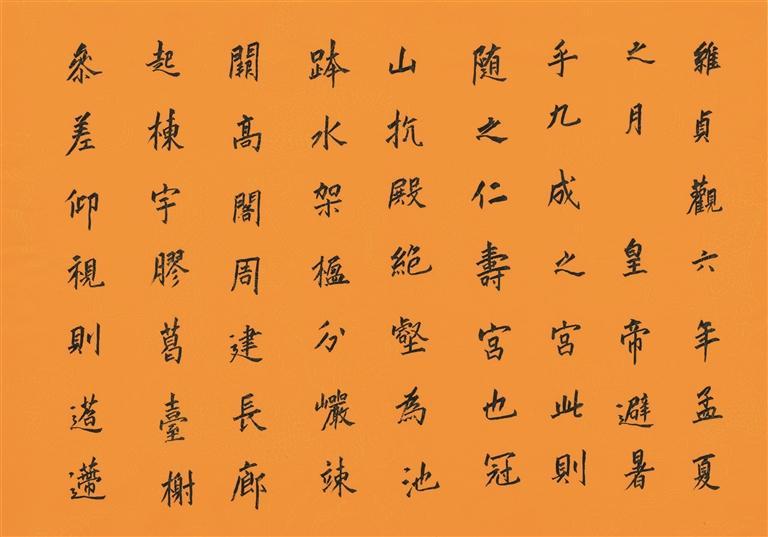 維貞觀六年孟夏
之月 皇帝避暑
乎九成之宮此則
随之仁壽宮也冠
山抗殿絶壑為池
跨水架楹分巗竦
闕髙閣周建長廊
起棟宇膠葛臺榭
叅差仰視則迢遰